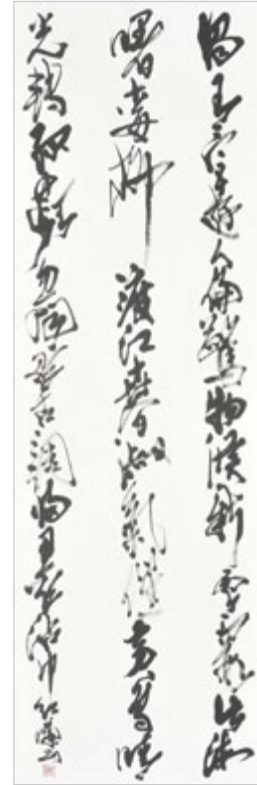 獨有宦遊人偏驚物候新雲霞出海
曙梅柳渡江春淑氣催黄鳥晴
光轉緑蘋忽聞歌古調歸思欲沾巾